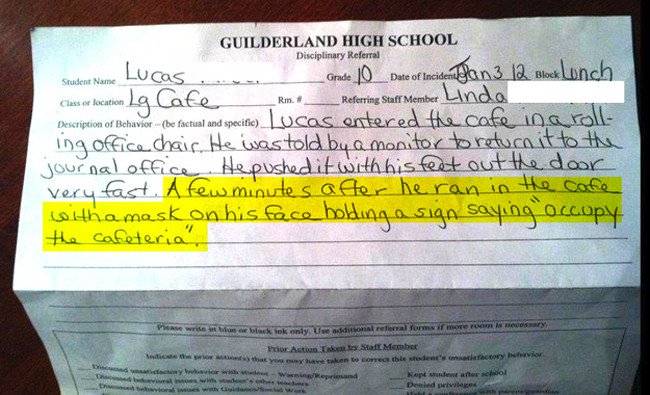 GUILDERLAND HIGH SCHOOL
Disciplinary Referral
Student Name Lucas Grade 10 Date of Incident Jan 3 12 Block Lunch
Class or location Lg Cafe Rm. # Referring Staff Member Linda
Description of Behavior – (be factual and specific) Lucas entered the cafe in a roll-
ing office chair. He was told by a monitor to return it to the
journal office. He pushed it with his feet out the door
very fast. A few minutes after he ran in the cafe
with a mask on his face holding a sign saying "occupy
the cafeteria".
Please write in blue or black ink only. Use additional referral forms if more room is necessary.
Prior Action Taken by Staff Member
Indicate the prior action(s) that you may have taken to correct this student's unsatisfactory behavior.
Discussed unsatisfactory behavior with student – Warning/Reprimand Kept student after school
Discussed behavioral issues with student's other teachers Denied privileges
Discussed behavioral issues with Guidance/Social Work Held a conference with parents/guardian